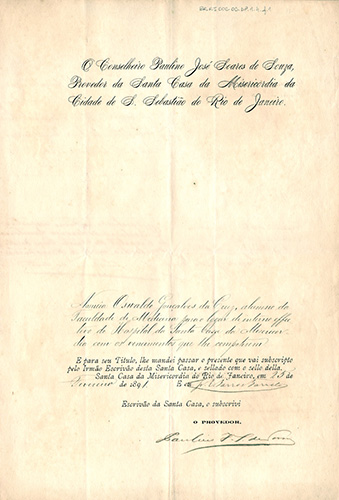 O Conselheiro Paulino José Soares de Souza,
Provedor da Santa Casa da Misericordia da
Cidade de S. Sebastião do Rio de Janeiro.
Osvaldo Gonçalves da Cruz, alumno da
Faculdade de Medicina para o logar de interno effec
tivo do Hospital da Santa Casa da Misericor
dia com os vencimentos que lhe competirem
E para seu Titulo, lhe mandei passar o presente que vai subscripto
pelo Irmão Escrivão desta Santa Casa, e sellado com o sello della.
Santa Casa da Misericordia do Rio de Janeiro, em 13 de
de 1891 E eu
Escrivão da Santa Casa, o subscrivi
O PROVEDOR,